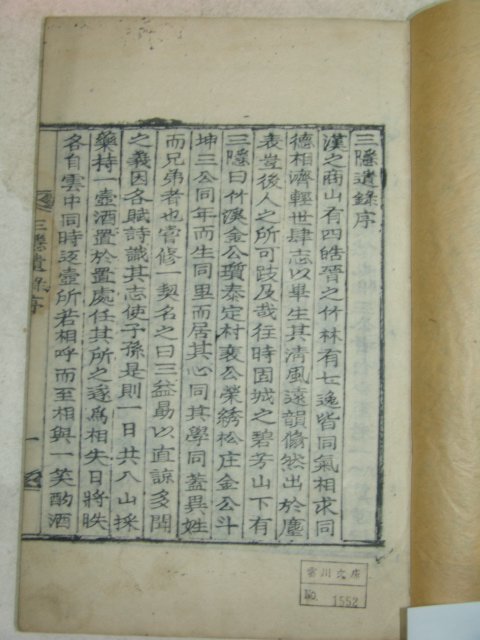 三隱遺錄序
漢之商山有四皓晉之竹林有七逸皆同氣相求同
德相濟輕世肆志以畢生其淸風遠韻翛然出於塵
表豈後人之所可跂及哉往時固城之碧芳山下有
三隱曰竹溪金公瓊泰定村裵公榮綉松庄金公斗
坤三公同年而生同里而居其心同其學同蓋異姓
而兄弟者也嘗修一契名之曰三益易以直諒多聞
之義因各賦詩識其志使子孫是則一日共入山採
藥持一壺酒置於置處任其所之逐爲相失日將昳
各自雲中同時返壺所若相呼而至相與一笑酌酒
三隱遺錄序
一
雲川文庫
No. 1552